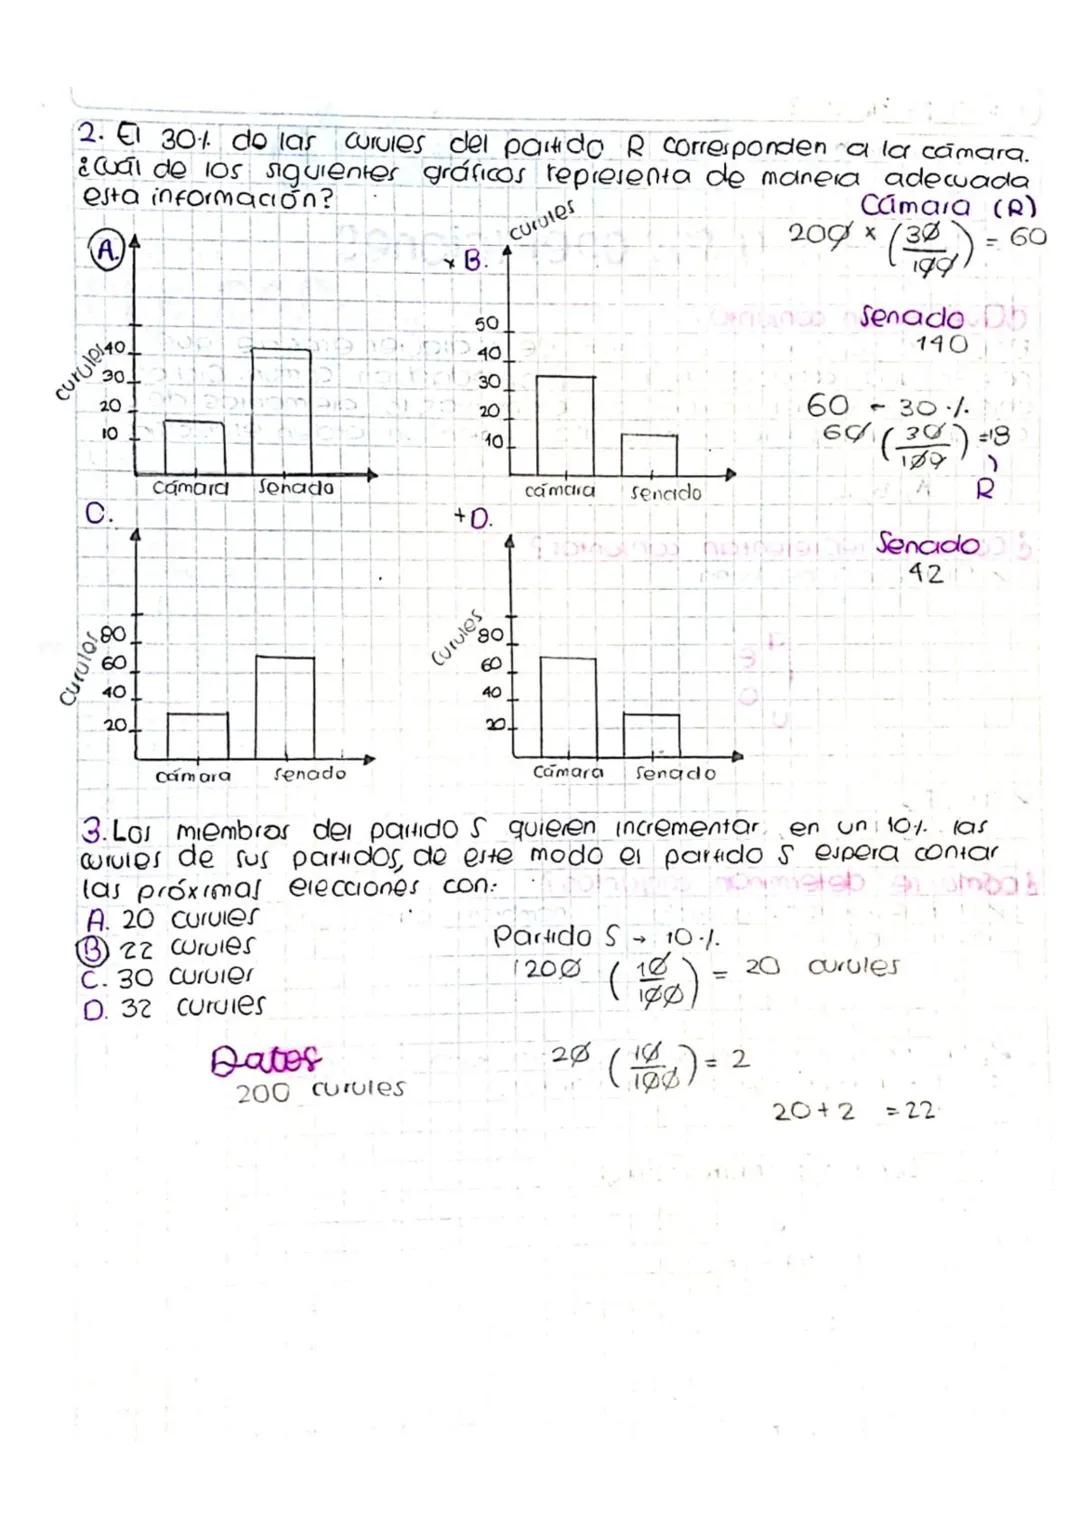 2. El 30% de las curules del partido R corresponden a la cámara.
¿Cuál de los siguientes gráficos representa de manera adecuada
esta información?
Cámara (R)
200 × (30/100) = 60
Senado
140
60 - 30%
60 (30/100) = 18
R
Senado
42
A.
curules
40
30
20
10
cámara senado
x B.
curules
50
40
30
20
10
cámara senado
C.
Curules
80
60
40
20
cámara senado
+D.
Curules
80
60
40
20
Cámara senado
3. Los miembros del partido S quieren incrementar en un 10% las
curules de sus partidos, de este modo el partido S espera contar
las próximas elecciones con:
A. 20 curules
B 22 curules
C. 30 curules
D. 32 curules
Partido S → 10%
200 (10/100) = 20 curules
20 (10/100) = 2
20+2 =22
Datos
200 curules